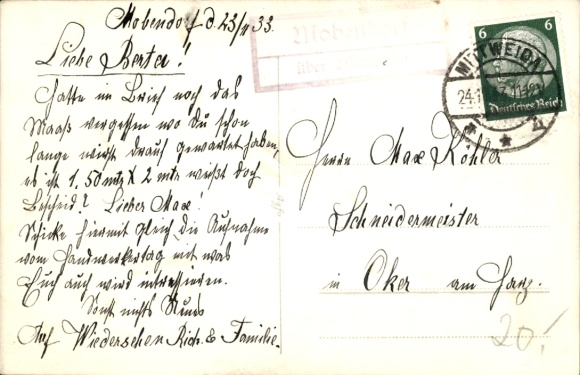 Mobendorf d. 23/11 33.
Liebe Berta!
Hatte im Brief noch das
Maaß vergessen wo Du schon
lange wirst drauf gewartet haben,
es ist 1,50 mtr X 2 mtr weißt doch
Bescheid? Lieber Max!
Schicke hiermit gleich die Aufnahme
vom Handwerkertag mit was
Euch auch wird interessieren.
Sonst nichts Neues
Auf Wiedersehen Rich. & Familie.
Moben
über
MITTWEIDA
24.1
6 6
Deutsches Reich
Herrn Max Köhler
Schneidermeister
in Oker am Harz.
20.-